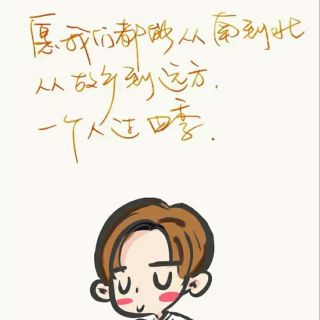 愿我们都能从南到北
从故乡到远方,
一个人过四季.